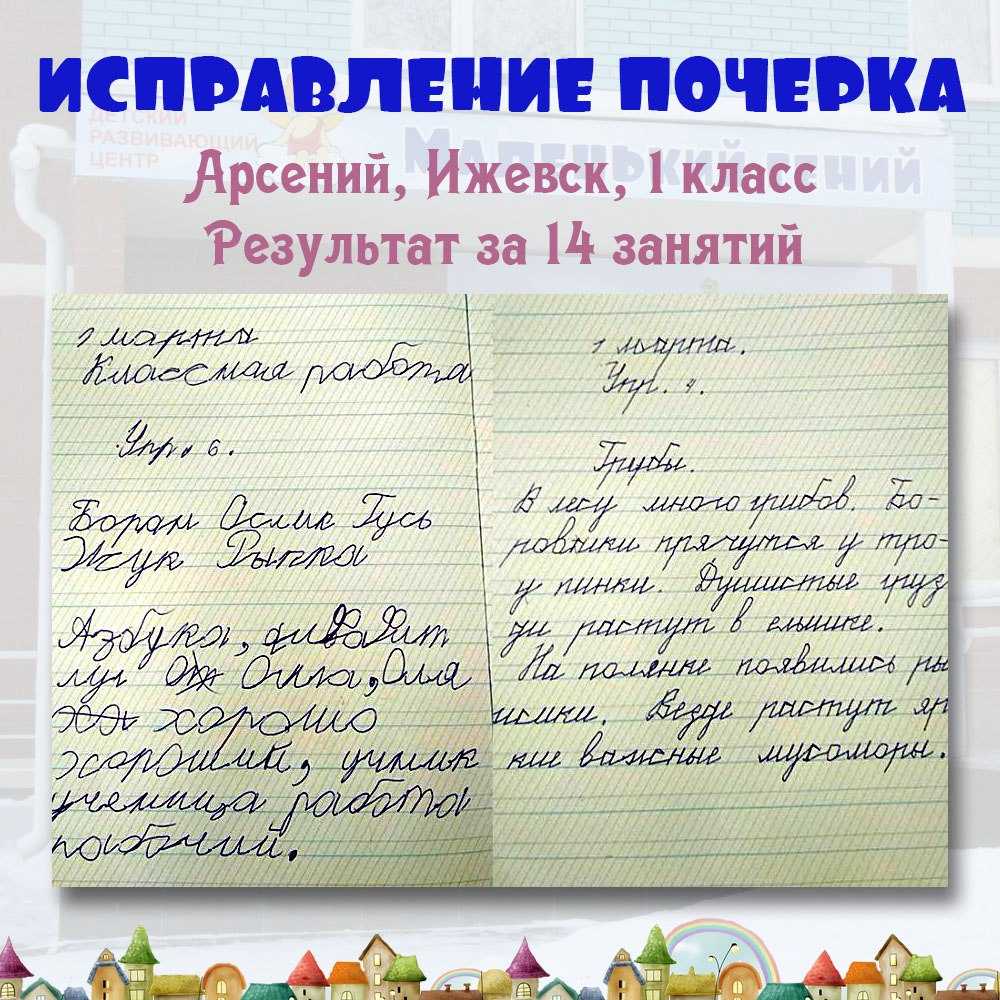 ИСПРАВЛЕНИЕ ПОЧЕРКА
ДЕТСКИЙ
РАЗВИВАЮЩИЙ
ЦЕНТР
Маленький гений
Арсений, Ижевск, 1 класс
Результат за 14 занятий
1 марта
Классмая работа
Упр. 6.
Боран Ослик Гусь
Жук Рыпка
Азбука, алфавит
луг Олла, Оля
хорошо
хороший, учиик
учемица работа
рабочий.
1 марта.
Упр. 4.
Грибы.
В лесу много грибов. Бо-
ровики прячутся у тро-
у пинки. Душистые груз
ди растут в ельнике.
На полянке появились ры
жики. Везде растут яр
кие важные мухоморы.